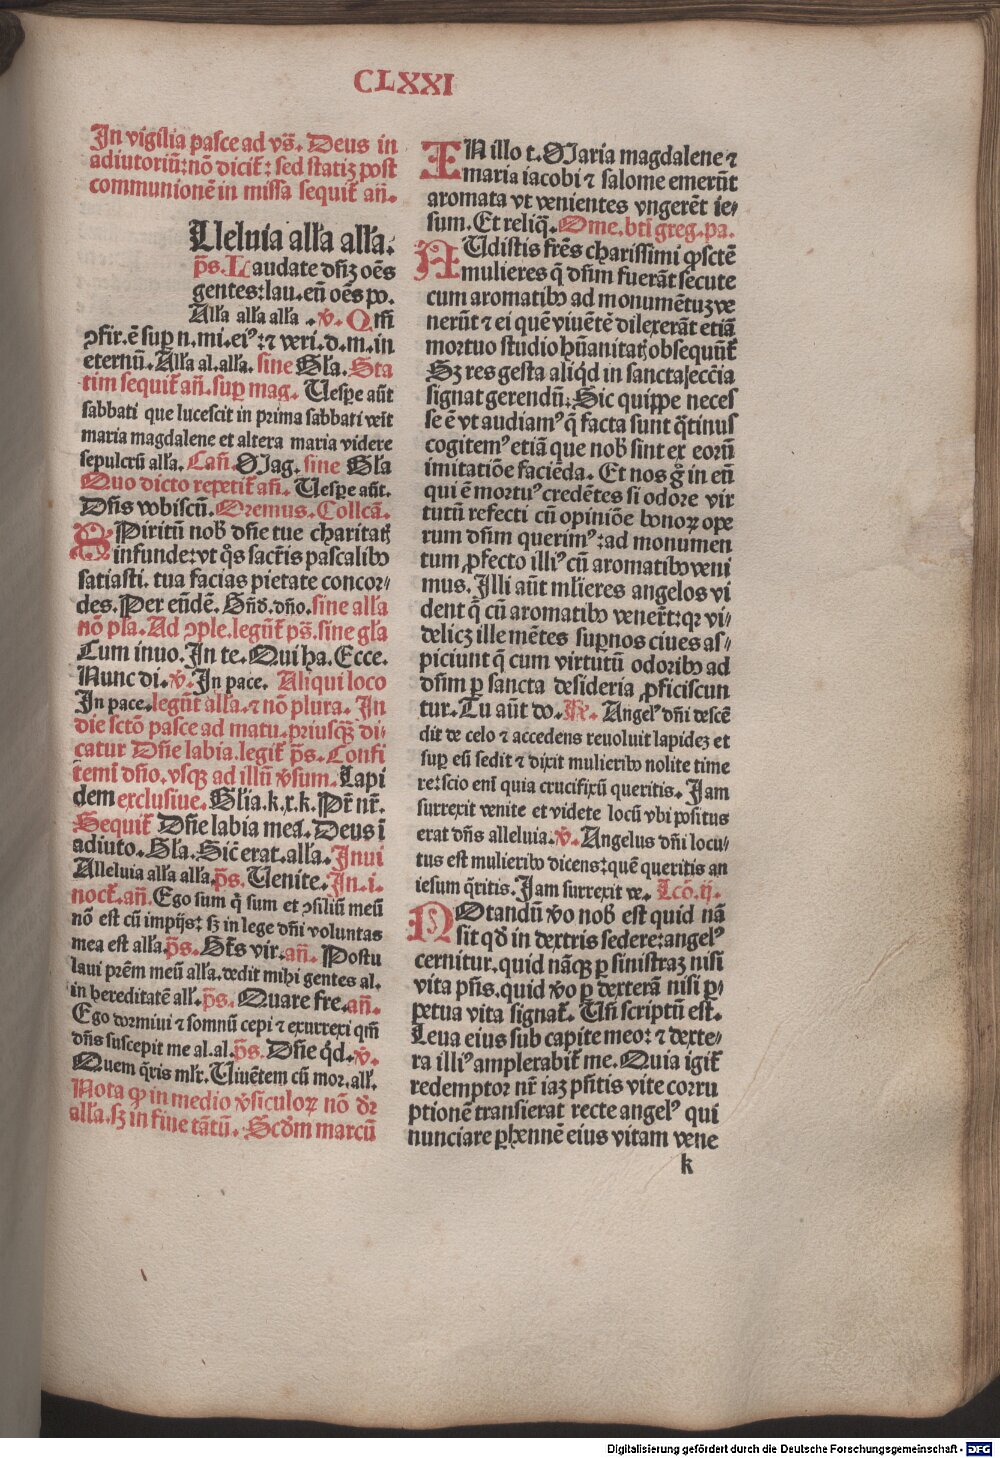 CLXXI
In vigilia pasce ad vs̄. Deus in
adiutoriū: nō dicit᷑: sed statiꝫ post
communionē in missa sequit᷑ an̄.
Lleluia alła alła.
ps̄. Laudate dn̄iꝫ oēs
gentes: lau. eū oēs po.
Alła alła alła . ℣. Qm̄
ꝯfir. ē suꝑ n. mi. eiꝰ: ⁊ veri. d. m. in
eternū. Alła al. alła. sine Gła. Sta
tim sequit᷑ an̄. suꝑ mag. Uespe aūt
sabbati que lucescit in prima sabbati veīt
maria magdalene et altera maria videre
sepulcrū alła. Cań. Mag. sine Gła
Quo dicto repetit᷑ an̄. Uespe aūt.
Dn̄s vobiscū. Oremus. Collcā.
SPiritū nob̄ dn̄e tue charitatꝭ
infunde: vt q̄s sacr̄is pascalibꝰ
satiasti. tua facias pietate concor-
des. Per eūdē. Bn̄d. dn̄o. sine alła
nō pła. Ad ꝯple. legūt᷑ ps̄. sine gła
Cum inuo. In te. Qui ha. Ecce.
Nunc di. ℣. In pace. Aliqui loco
In pace. legūt alła. ⁊ nō plura. In
die sctō pasce ad matu. priusqꝫ di-
catur Dn̄e labia. legit᷑ ps̄. Confi
temī dn̄o. vsqꝫ ad illū ꝟsum. Lapi
dem exclusiue. Glīa. k. x. k. Pr̄ nr̄.
Sequit᷑ Dn̄e labia mea. Deus ī
adiuto. Gła. Sic̄ erat. alła. Inui
Alleluia alła alła. ps̄. Uenite. In. i.
noct᷑. an̄. Ego sum q̄ sum et ꝯsiliū meū
nō est cū impijs: sꝫ in lege dn̄i voluntas
mea est alła. ps̄. Bt̄s vir. an̄. Postu
laui prēm meū alła. dedit mihi gentes al.
in hereditatē ałł. ps̄. Quare fre. an̄.
Ego dormiui ⁊ somnū cepi ⁊ exurrexi qm̄
dn̄s suscepit me al. al. ps̄. Dn̄e q̇d. ℣.
Quem q̄ris mlr̄. Uiuētem cū mor. ałł.
Nota ꝙ in medio ꝟsiculoꝝ nō dr̄
alła. sꝫ in fine tātū. Scd̄m marcū
IN illo t. Maria magdalene ⁊
maria iacobi ⁊ salome emerūt
aromata vt venientes vngerēt ie-
sum. Et reliq̄. Ome. bti greg. pa.
AUdistis fr̄es charissimi ꝙ sctē
mulieres q̄ dn̄m fuerāt secute
cum aromatibꝰ ad monumētuꝫ ve
nerūt ⁊ ei quē viuētē dilexerāt etiā
mortuo studio hūanitatꝭ obsequūt᷑
Sꝫ res gesta aliq̇d in sancta eccīa
signat gerendū. Sic quippe neces
se ē vt audiamꝰ q̄ facta sunt q̄tinus
cogitemꝰ etiā que nob̄ sint ex eorū
imitatiōe faciēda. Et nos gͦ in eū
qui ē mortuꝰ credētes si odore vir
tutū refecti cū opiniōe bonoꝝ ope
rum dn̄m querimꝰ: ad monumen
tum ꝓfecto illiꝰ cū aromatibꝰ veni
mus. Illi aūt mlieres angelos vi
dent q̄ cū aromatibꝰ venerūt: qꝛ vi-
delicꝫ ille mētes suꝑnos ciues as-
piciunt q̄ cum virtutū odoribꝰ ad
dn̄m ꝑ sancta desideria ꝓficiscun
tur. Tu aūt do. ℟. Angelꝰ dn̄i descē
dit de celo ⁊ accedens reuoluit lapideꝫ et
suꝑ eū sedit ⁊ dixit mulieribꝰ nolite time
re: scio enī quia crucifixū queritis. Iam
surrexit venite et videte locū vbi positus
erat dn̄s alleluia. ℣. Angelus dn̄i locu-
tus est mulieribꝰ dicens: quē queritis an
iesum q̄ritis. Iam surrexit ve. Lcō. ij.
NOtandū ꝟo nob̄ est quid nā
sit qd̄ in dextris sedere: angelꝰ
cernitur. quid nāqꝫ ꝑ sinistraꝫ nisi
vita pn̄s. quid ꝟo ꝑ dexterā nisi ꝑ-
petua vita signat᷑. Un̄ scriptū est.
Leua eius sub capite meo: ⁊ dexte-
ra illiꝰ amplexabit᷑ me. Quia igit᷑
redemptor nr̄ iaꝫ pn̄tis vite corru
ptionē transierat recte angelꝰ qui
nunciare ꝑhennē eius vitam vene
k
Digitalisierung gefördert durch die Deutsche Forschungsgemeinschaft - DFG